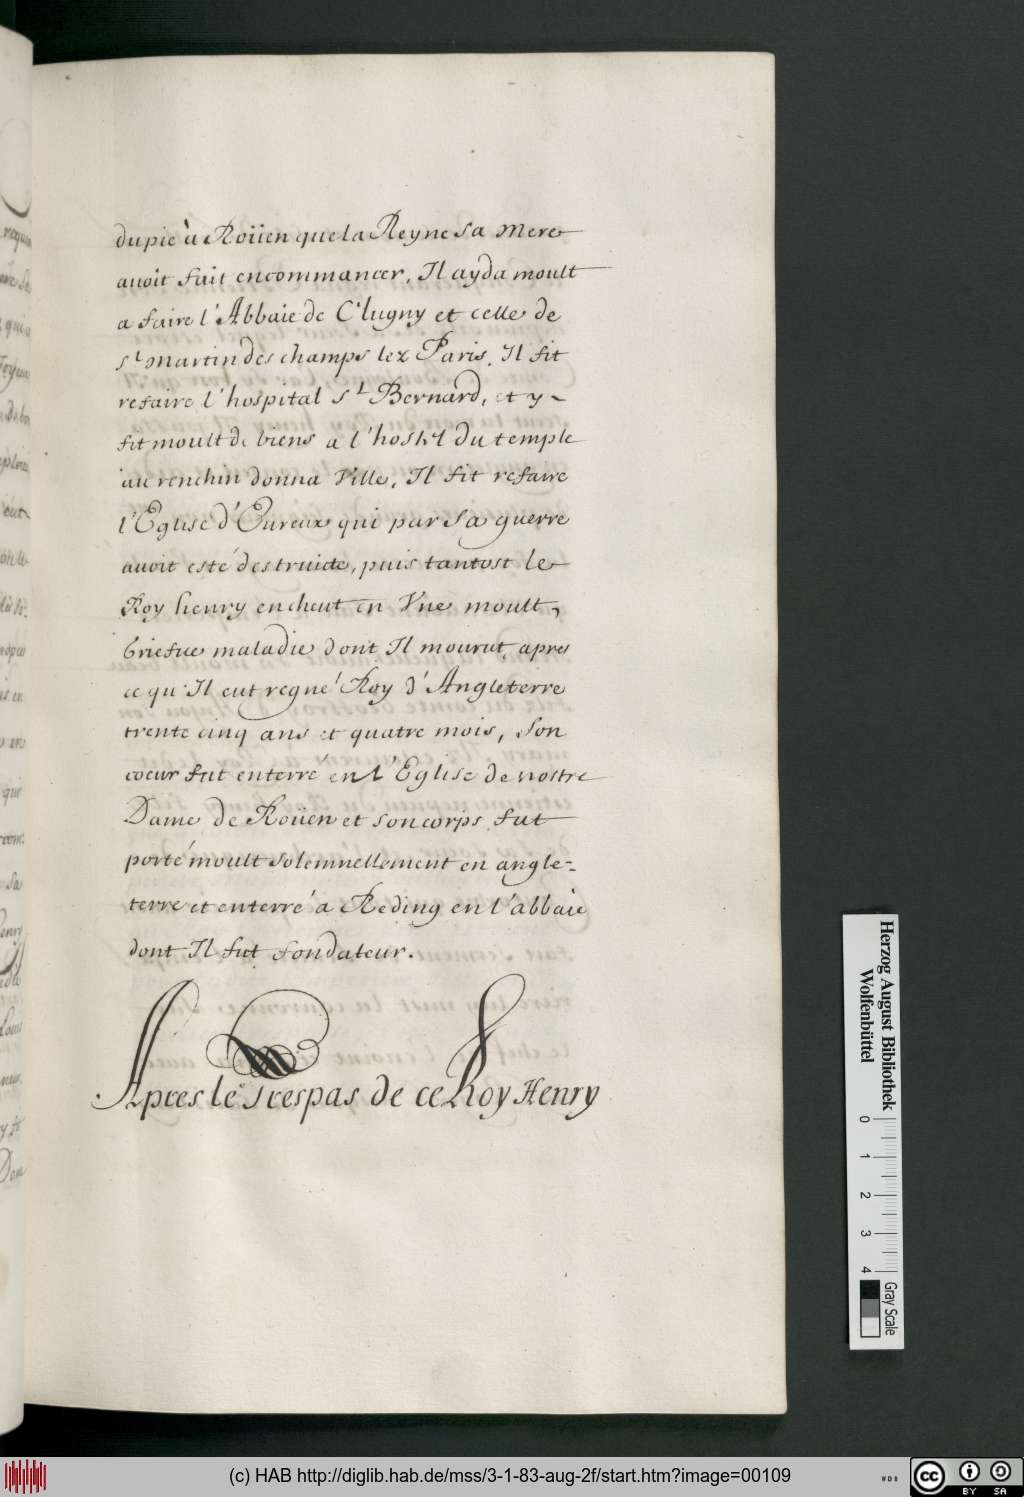 dupie à Roüen que la Reyne sa mere
auoit fait encommancer, Il ayda moult
a faire l'Abbaie de Clugny et celle de
st Martin des champs lez Paris, Il fit
refaire l'hospital st Bernard, et y
fit moult de biens a l'hostel du temple
au renchin donna Ville, Il fit refaire
l'Eglise d'Eureux qui par sa guerre
auoit esté destruicte, puis tantost le
Roy henry encheut en Vne moult
briefue maladie dont Il mourut, apres
ce qu'Il eut regné Roy d'Angleterre
trente cinq ans et quatre mois, Son
coeur fut enterré en l'Eglise de nostre
Dame de Roüen et son corps fut
porté moult solemnellement en angle=
terre et enterré a Reding en l'abbaie
dont Il fut fondateur.
Apres le Trespas de ce Roy Henry
Herzog August Bibliothek
Wolfenbüttel
0 1 2 3 4
Gray Scale
(c) HAB http://diglib.hab.de/mss/3-1-83-aug-2f/start.htm?image=00109
WDB
cc BY SA